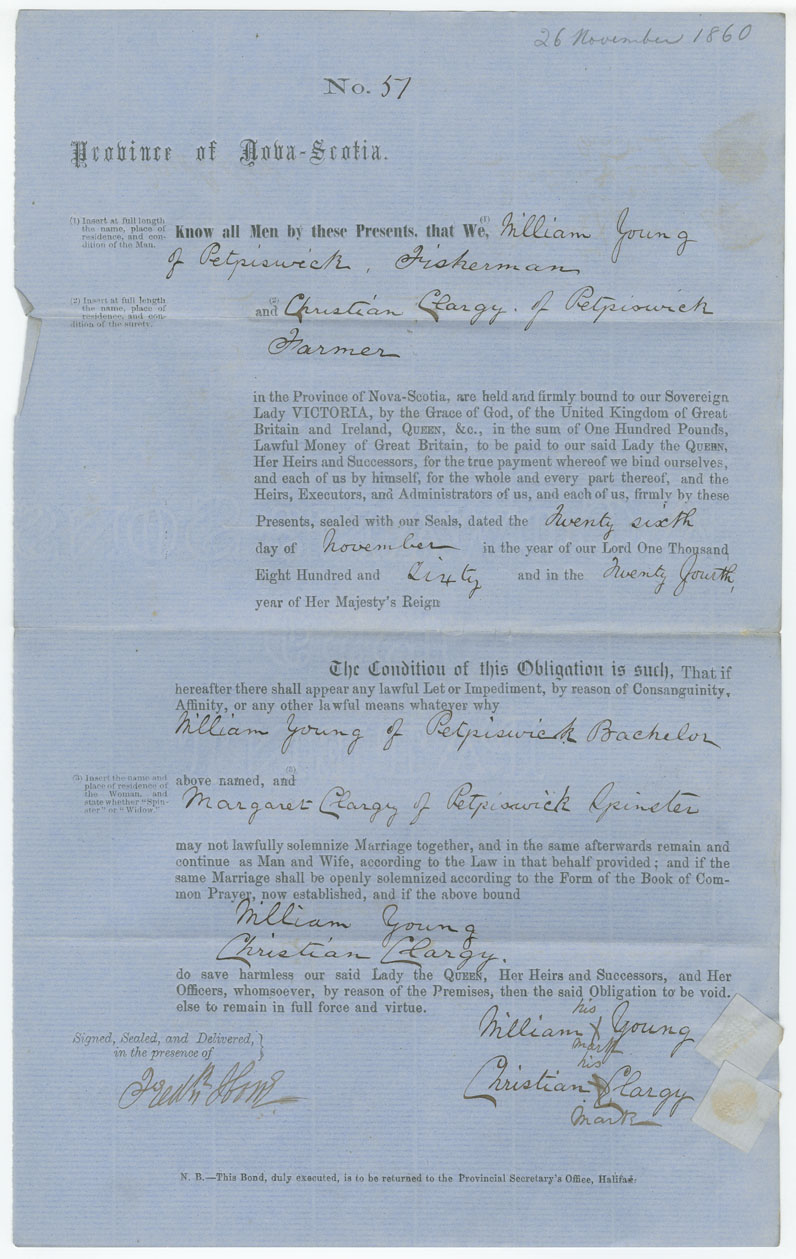 26 November 1860
No. 57
Province of Nova-Scotia.
(1) Insert at full length
the name, place of
residence, and con-
dition of the Man.
Know all Men by these Presents, that We, (1) William Young
of Petpiswick, Fisherman
(2) Insert at full length
the name, place of
residence, and con-
dition of the surety.
and (2) Christian Clargy. of Petpiswick
Farmer
in the Province of Nova-Scotia, are held and firmly bound to our Sovereign
Lady VICTORIA, by the Grace of God, of the United Kingdom of Great
Britain and Ireland, QUEEN, &c., in the sum of One Hundred Pounds,
Lawful Money of Great Britain, to be paid to our said Lady the QUEEN,
Her Heirs and Successors, for the true payment whereof we bind ourselves,
and each of us by himself, for the whole and every part thereof, and the
Heirs, Executors, and Administrators of us, and each of us, firmly by these
Presents, sealed with our Seals, dated the Twenty sixth
day of November in the year of our Lord One Thousand
Eight Hundred and Sixty and in the Twenty Fourth,
year of Her Majesty's Reign
The Condition of this Obligation is such, That if
hereafter there shall appear any lawful Let or Impediment, by reason of Consanguinity,
Affinity, or any other lawful means whatever why
William Young of Petpiswick Bachelor
(3) Insert the name and
place of residence of
the Woman, and
state whether "Spin-
ster" or "Widow."
above named, and (3)
Margaret Clargy of Petpiswick Spinster
may not lawfully solemnize Marriage together, and in the same afterwards remain and
continue as Man and Wife, according to the Law in that behalf provided; and if the
same Marriage shall be openly solemnized according to the Form of the Book of Com-
mon Prayer, now established, and if the above bound
William Young
Christian Clargy.
do save harmless our said Lady the QUEEN, Her Heirs and Successors, and Her
Officers, whomsoever, by reason of the Premises, then the said Obligation to be void.
else to remain in full force and virtue.
his
William X Young
mark
Signed, Sealed, and Delivered,
in the presence of
his
Christian X Clargy
mark
N. B.—This Bond, duly executed, is to be returned to the Provincial Secretary's Office, Halifax.